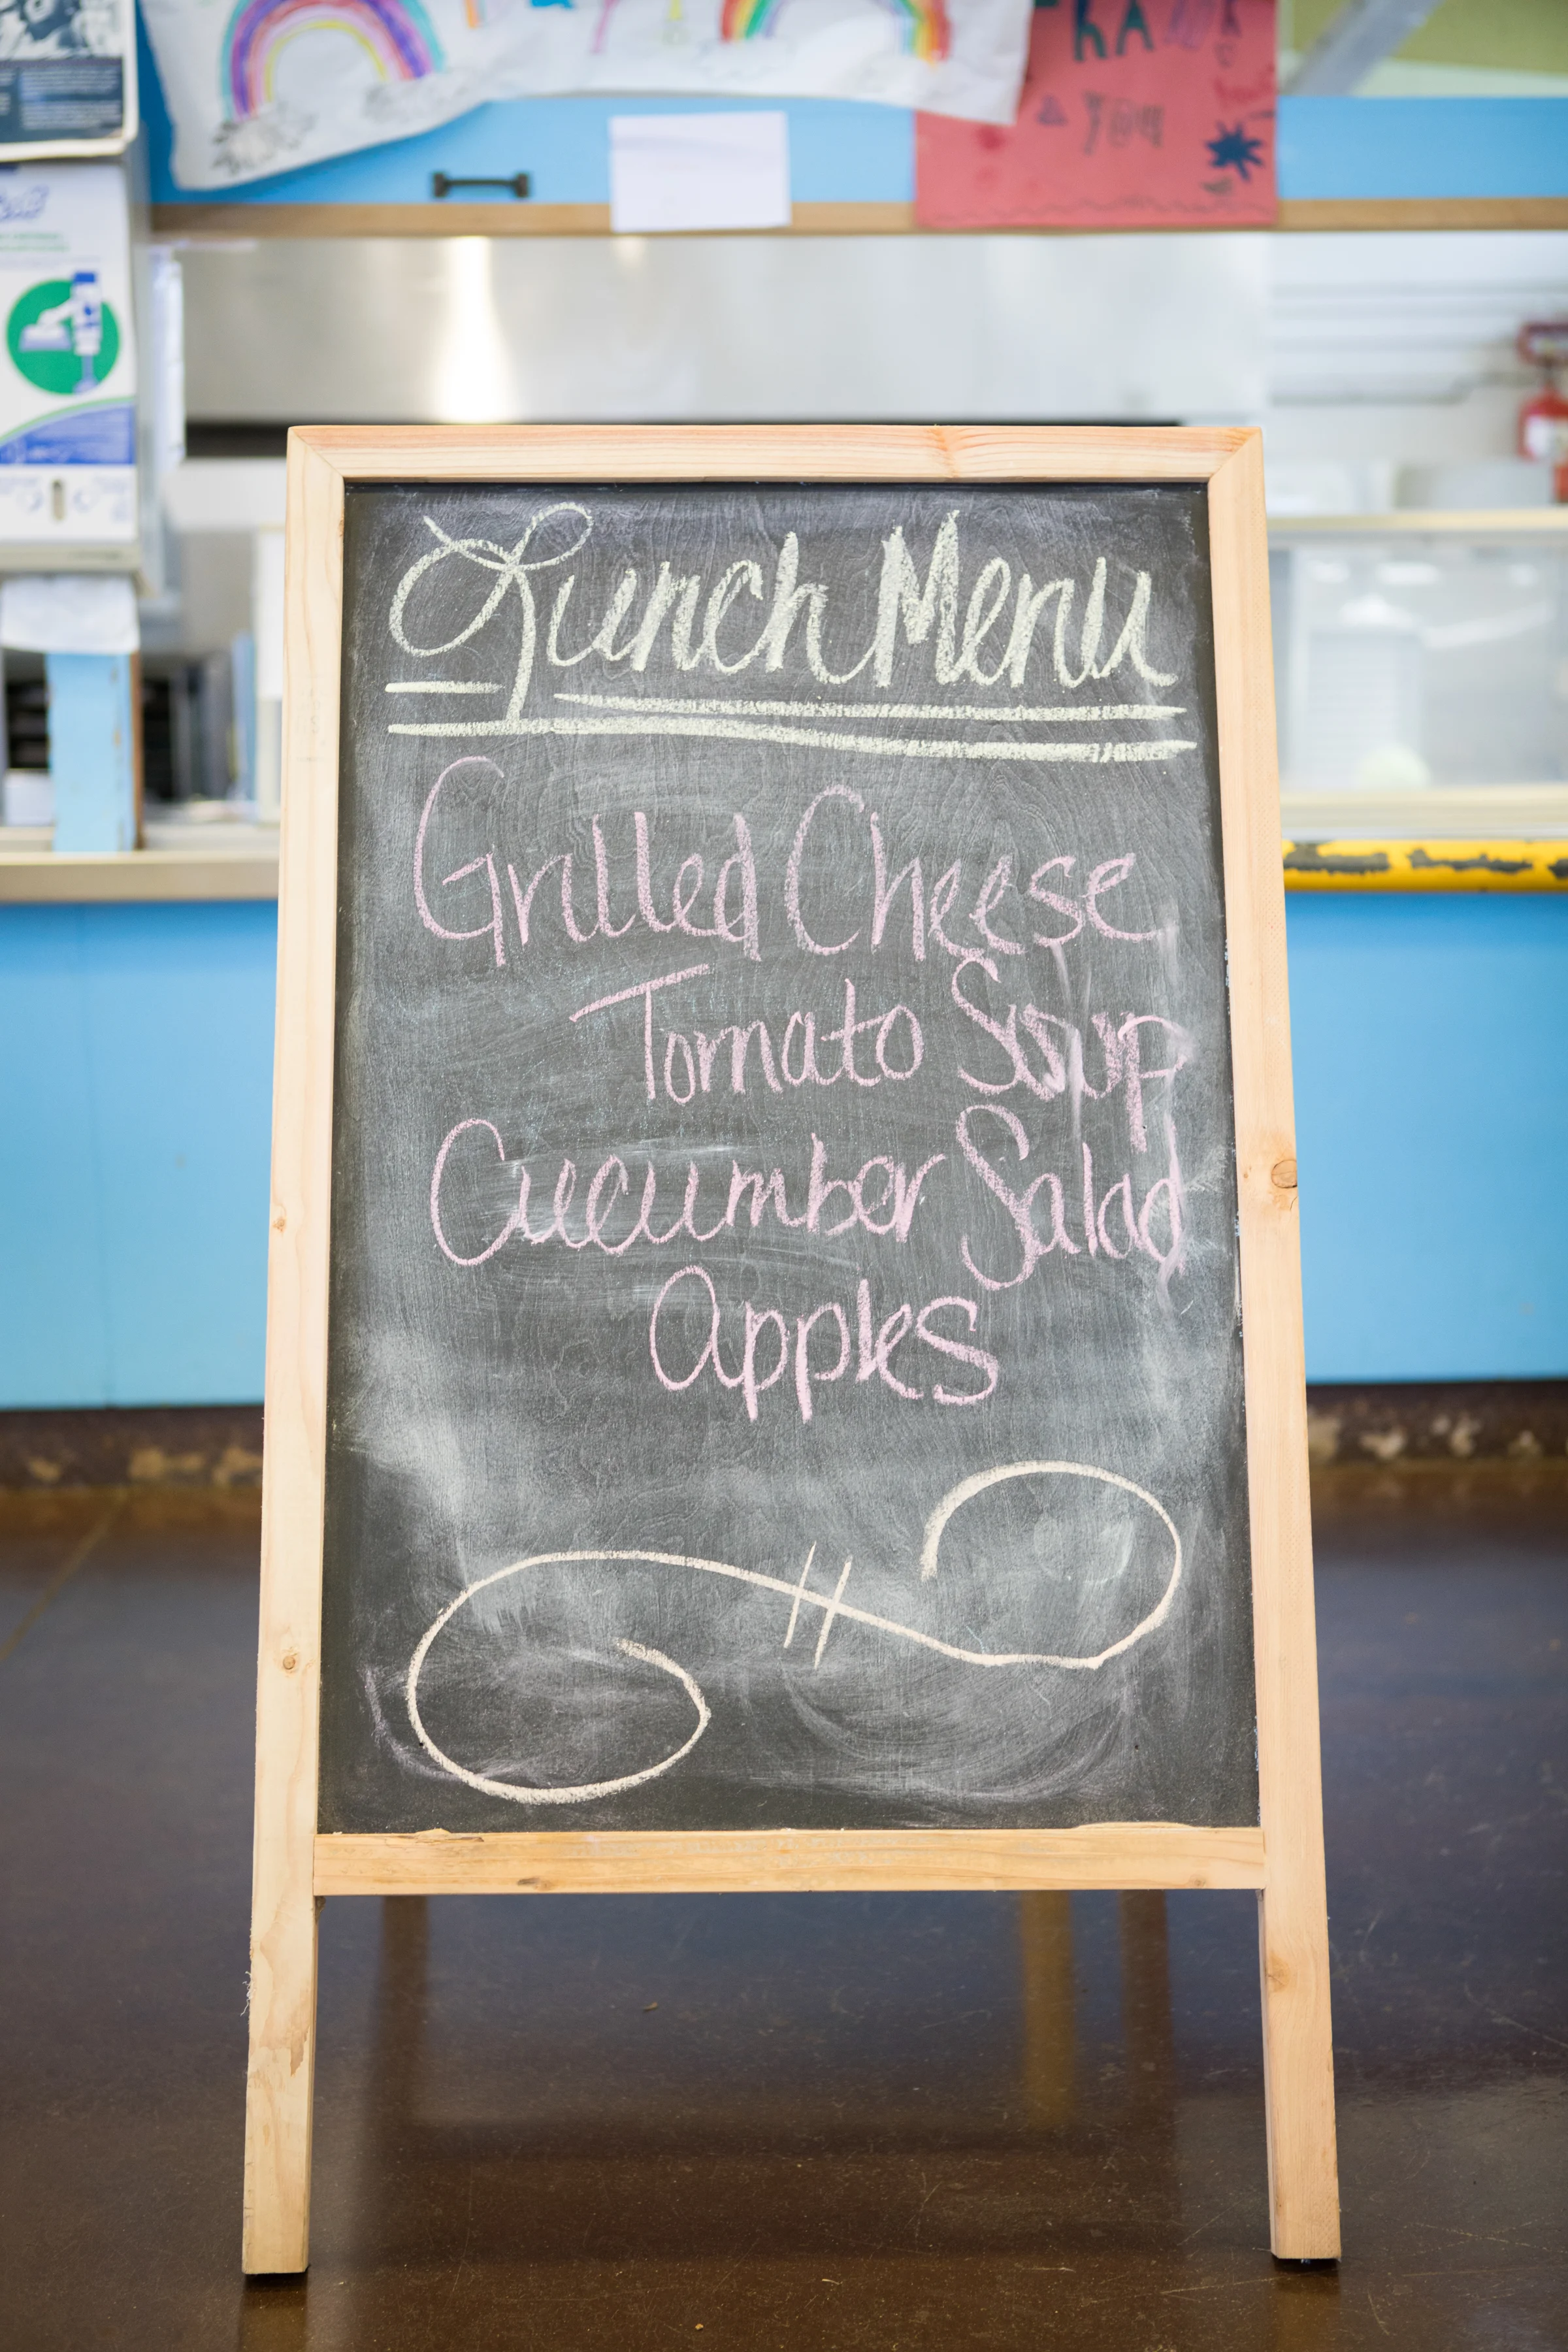 THANK
YOU
Lunch Menu
Grilled Cheese
Tomato Soup
Cucumber Salad
Apples